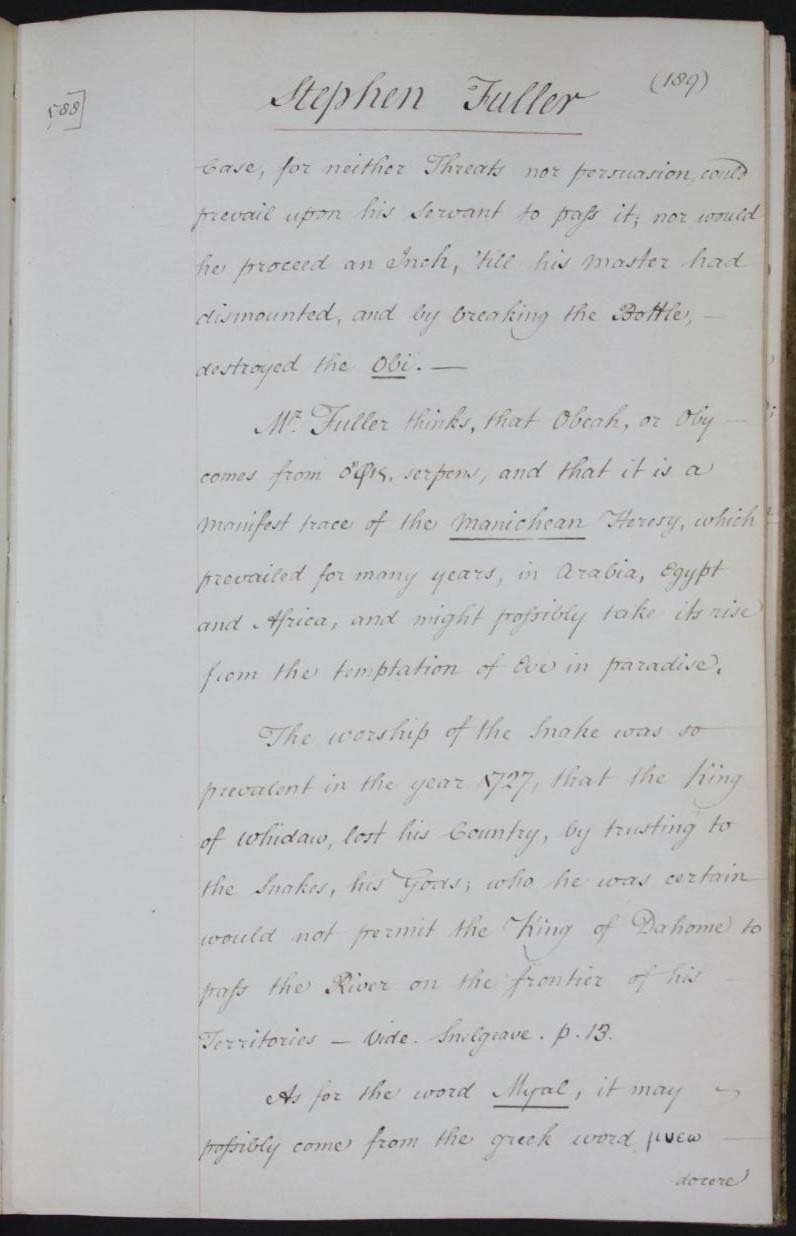 (189)
Stephen Fuller
588]
Case, for neither Threats nor persuasion, could
prevail upon his Servant to paſs it; nor would
he proceed an Inch, 'till his Master had
dismounted, and by breaking the Bottle, —
destroyed the Obi. —
Mr. Fuller thinks, that Obeah, or Oby —
comes from ὄφις. serpens, and that it is a
manifest trace of the Manichean Heresy, which
prevailed for many years, in Arabia, Egypt
and Africa, and might poſsibly take its rise
from the temptation of Eve in paradise.
The worship of the Snake was so
prevalent in the year 1727, that the King
of Whidaw, lost his Country, by trusting to
the Snakes, his Gods; who he was certain
would not permit the King of Dahome to
paſs the River on the frontier of his —
Territories — Vide. Snelgrave. p. 13.
As for the word Myal, it may ~
poſsibly come from the greek word μυεω —
docere